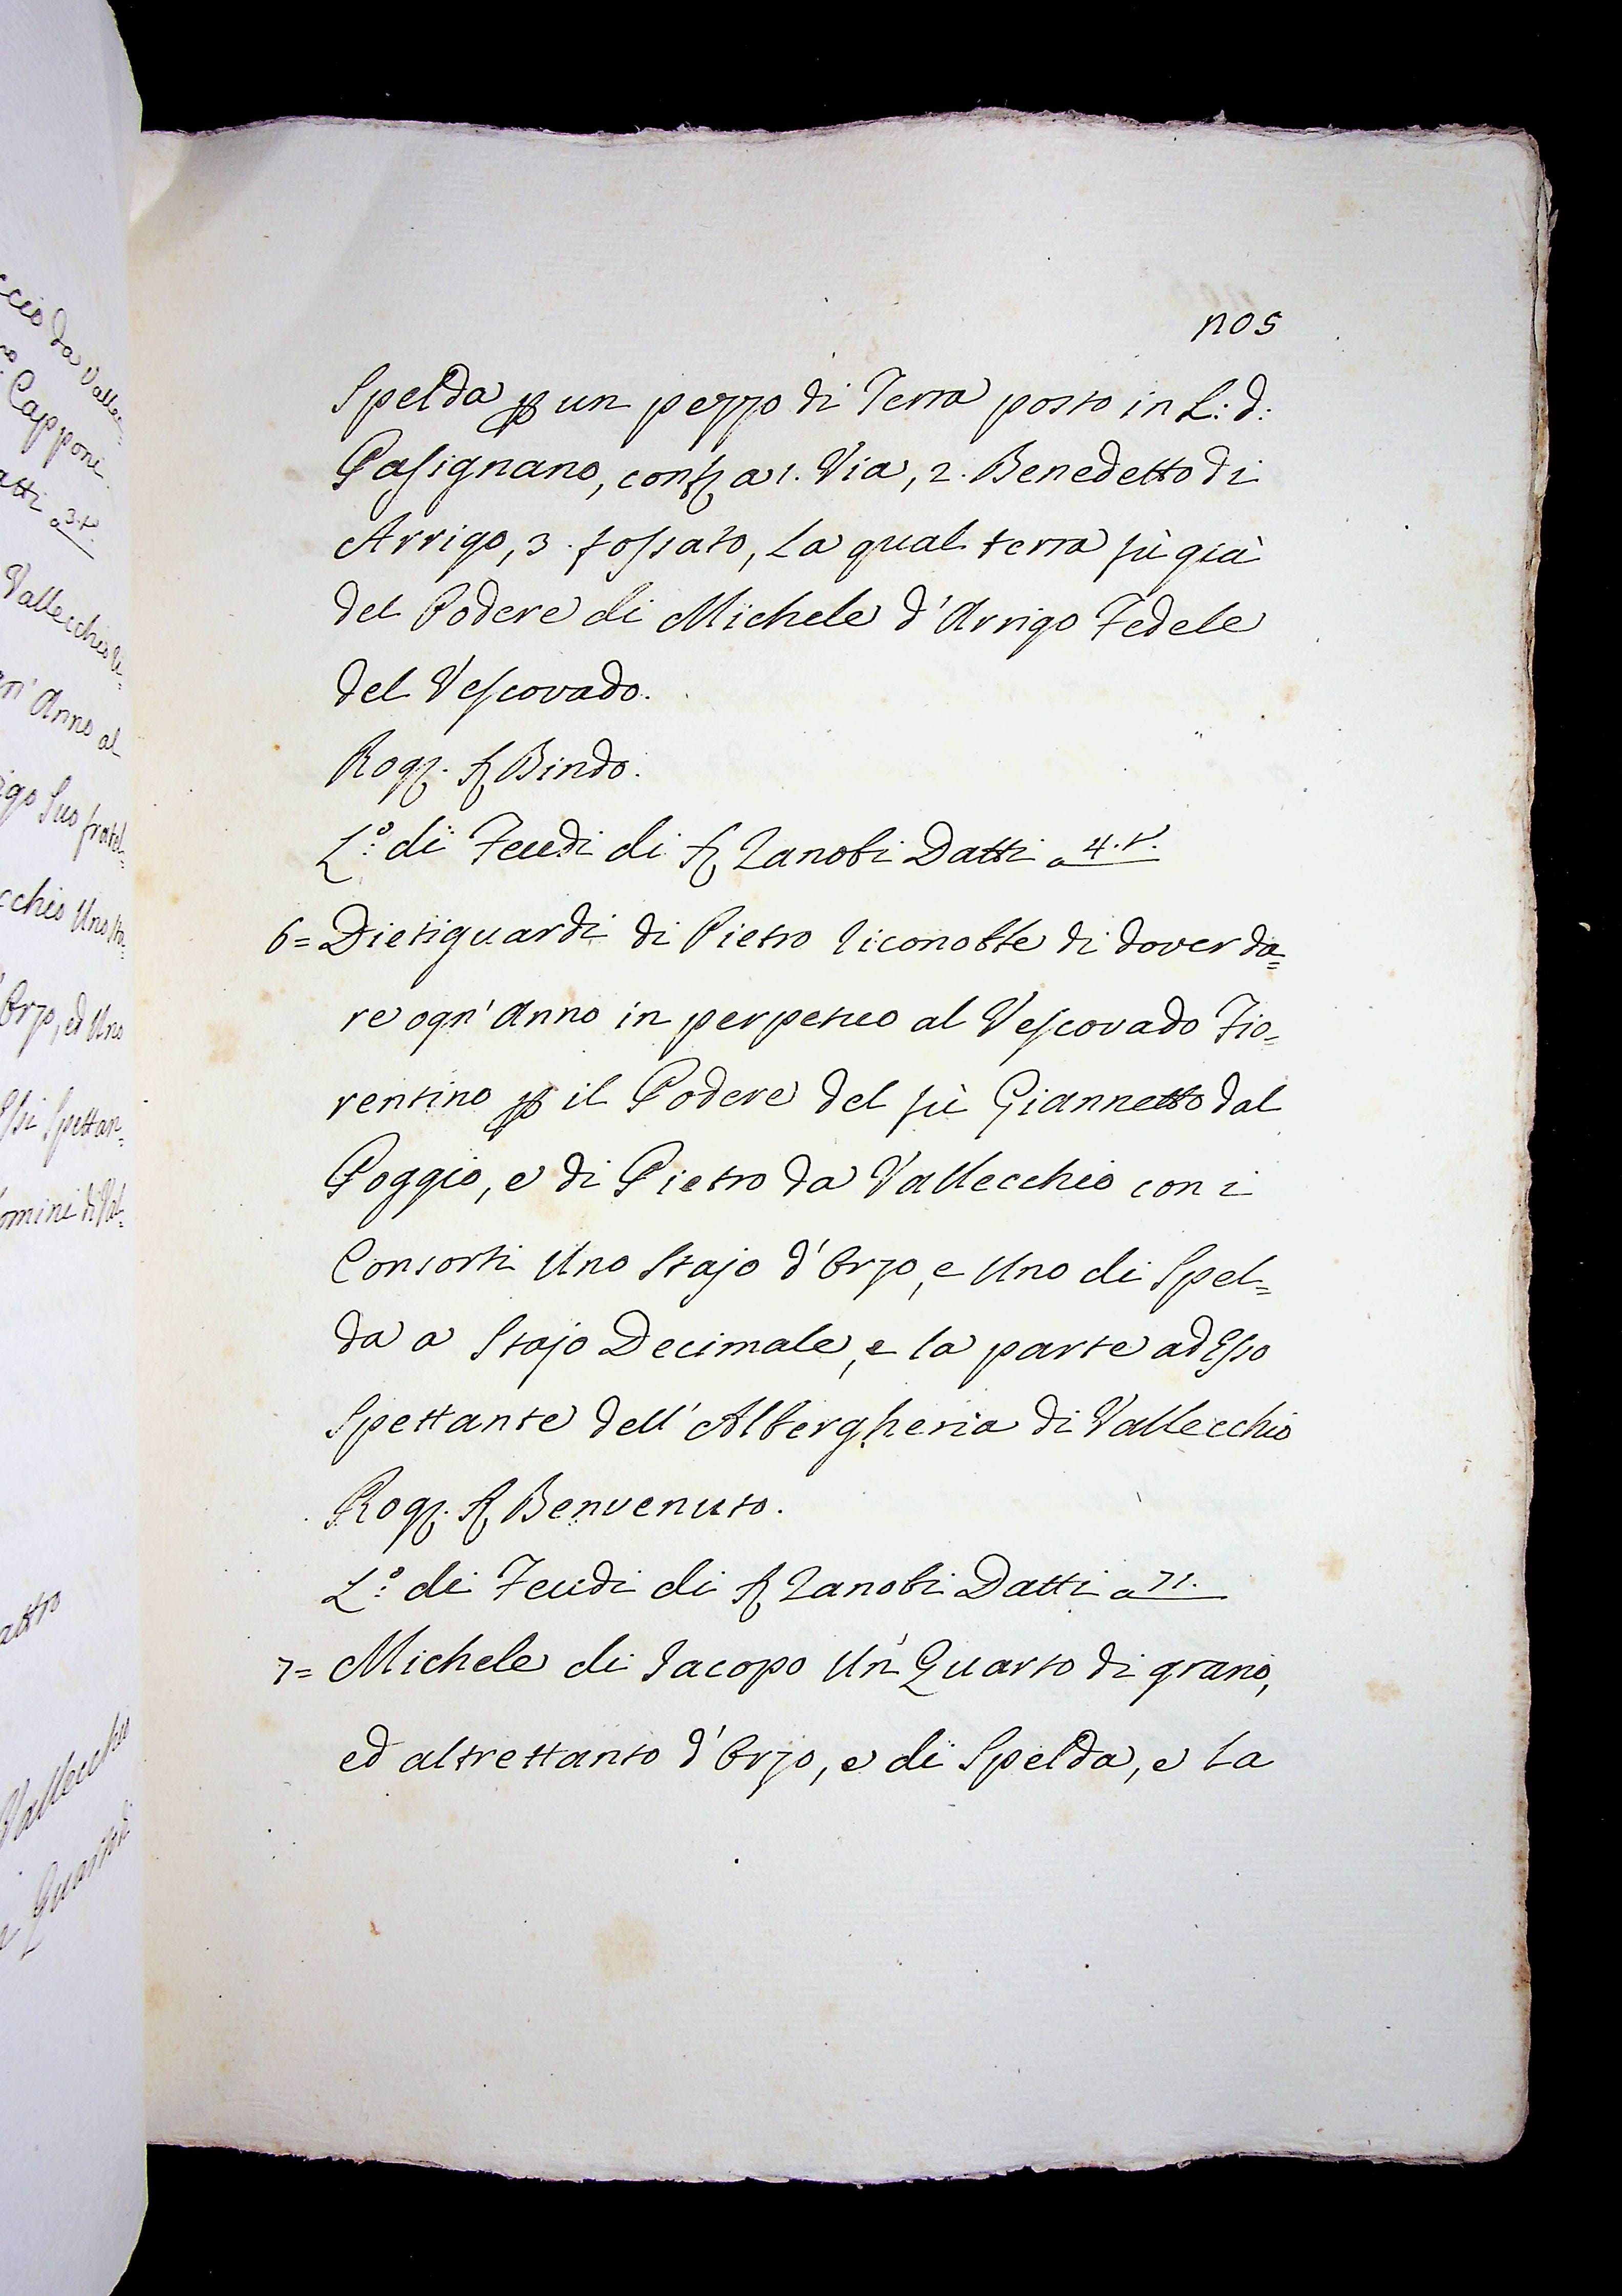 1105
Spelda p un pezzo di Terra posto in L: d:
Casignano, conf a 1. Via, 2. Benedetto di
Arrigo, 3. fossato, la qual terra fù già
del Podere di Michele d'Arrigo Fedele
del Vescovado.
Rog. S Bindo.
L.º di Feudi di S Zanobi Datti a 4.t.
6= Dietiguardi di Pietro riconobbe di dover da=
re ogn'Anno in perpetuo al Vescovado Fio=
rentino p il Podere del fù Giannetto dal
Poggio, e di Pietro da Vallecchio con i
Consorti Uno Stajo d'Orzo, e Uno di Spel=
da a Stajo Decimale, e la parte ad Esso
Spettante dell'Albergheria di Vallecchio
Rog. S Benvenuto.
L.º di Feudi di S Zanobi Datti a 71.
7= Michele di Jacopo Un Quarto di grano,
ed altrettanto d'Orzo, e di Spelda, e la
da Valle=
Capponi
atti a 3.t.
Vallecchio
n'Anno al
igo Suo fratel=
cchio Uno Sta=
Orzo, ed Uno
Essi Spettan=
omini di Val=
attro
Vallecchio
Quarto di